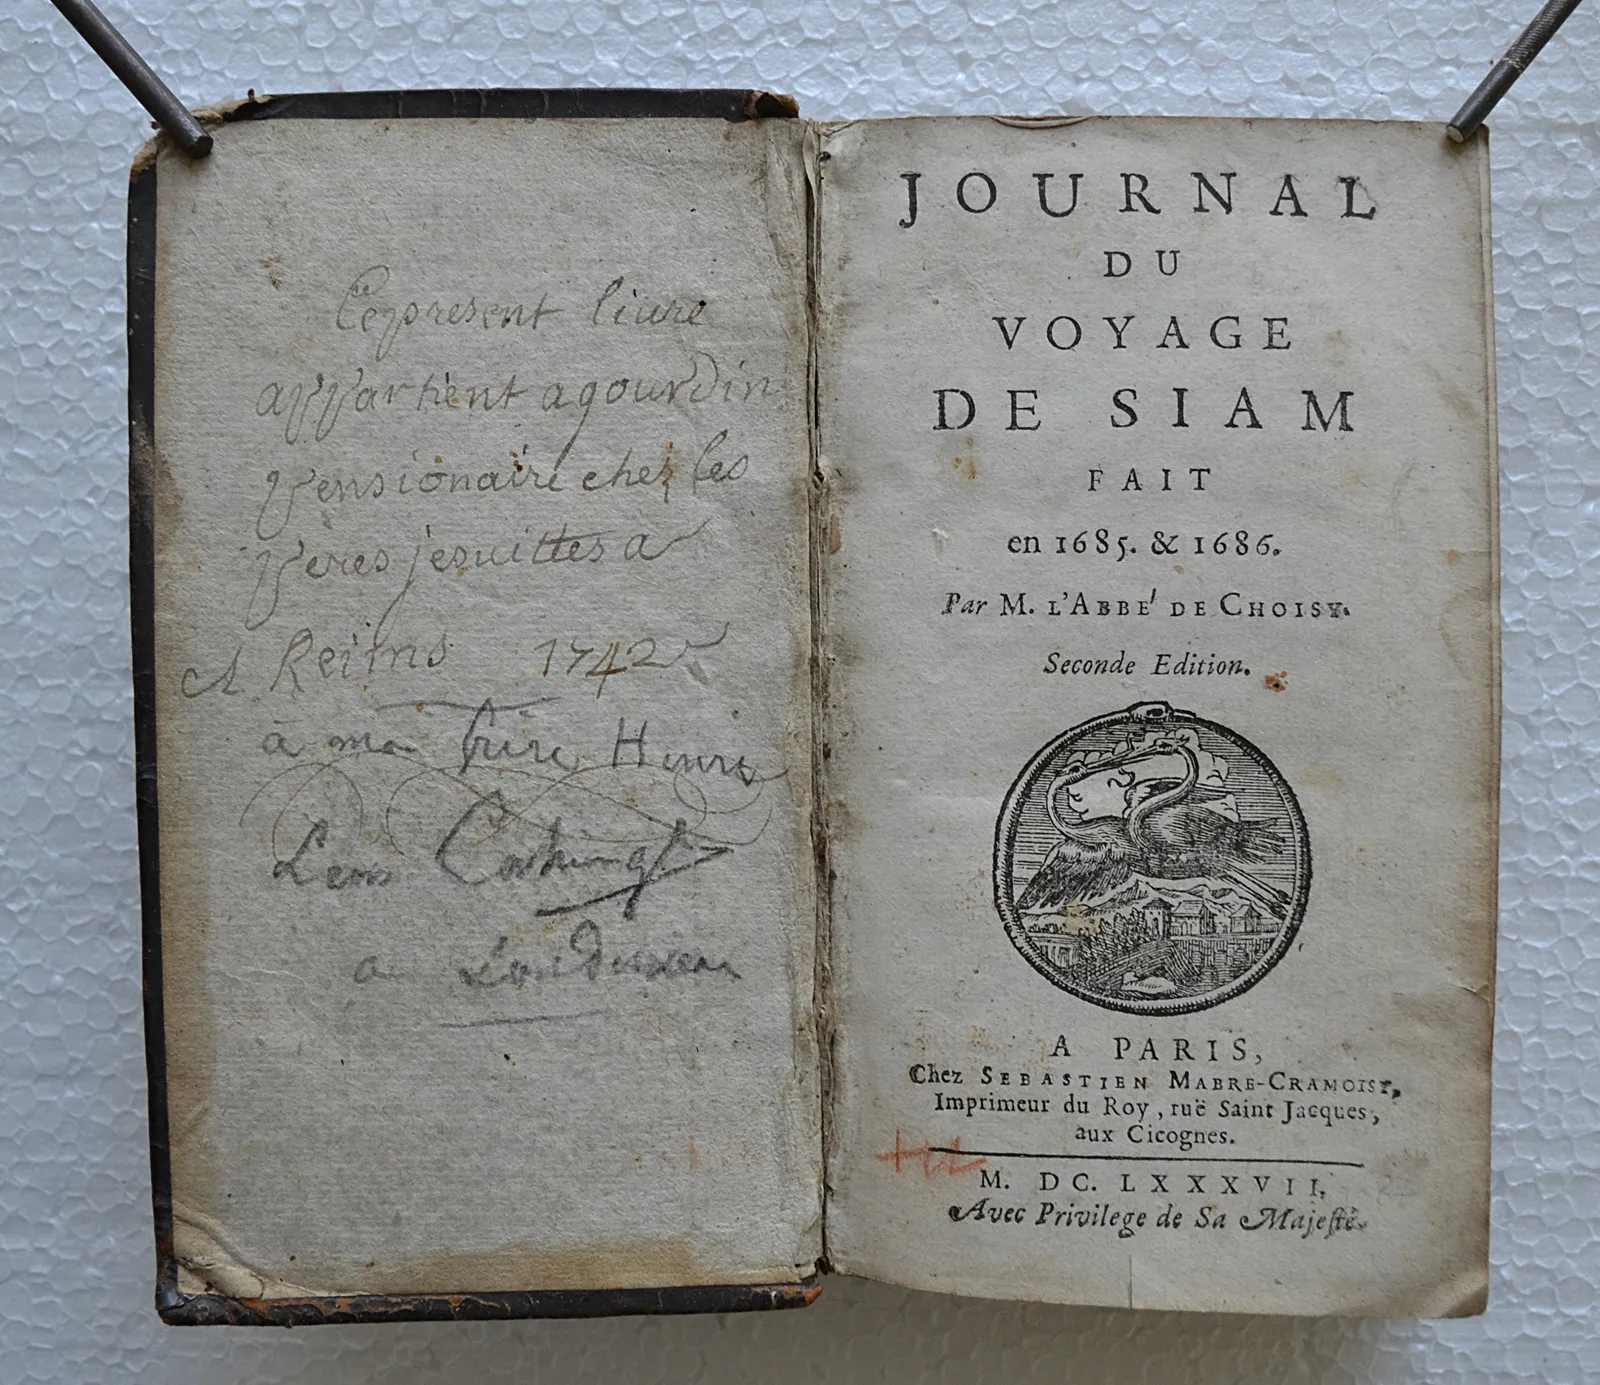 Ce present livre
appartient a gourdin
pensionaire chez les
peres jesuittes a
A Reims 1742
à mon frère Henri
Léon
a
JOURNAL
DU
VOYAGE
DE SIAM
FAIT
en 1685. & 1686.
Par M. L'ABBE' DE CHOISY.
Seconde Edition.
A PARIS,
Chez SEBASTIEN MABRE-CRAMOISY,
Imprimeur du Roy, ruë Saint Jacques,
aux Cicognes.
M. DC. LXXXVII.
Avec Privilege de Sa Majesté.